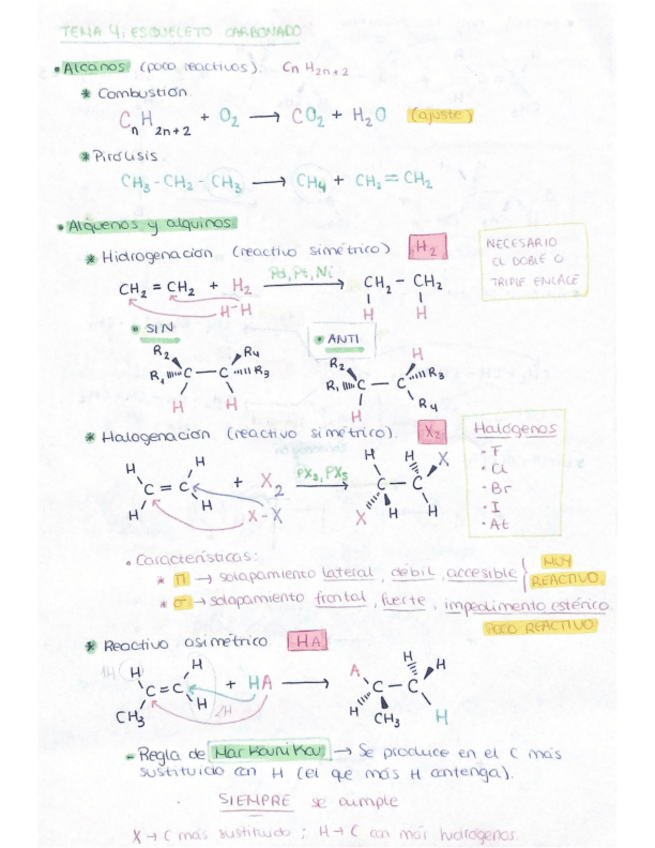 TEMA 4: ESQUELETO CARBONADO
• Alcanos (poco reactivos). CnH2n+2
* Combustión
CnH2n+2 + O2 → CO2 + H2O (ajuste)
* Pirólisis
CH3-CH2-CH3 → CH4 + CH2=CH2
• Alquenos y alquinos
* Hidrogenación (reactivo simétrico) H2
NECESARIO
EL DOBLE O
TRIPLE ENLACE
Pd, Pt, Ni
CH2 = CH2 + H2 → CH2 - CH2
H-H H H
• SIN • ANTI
R2 R4 R2 H
R1 C - C R3 R1 C - C R3
H H H R4
* Halogenación (reactivo simétrico). X2
Halógenos
• F
• Cl
• Br
• I
• At
H H H H X
C = C + X2 PX3, PX5 → C - C
H H X-X X H H
• Características:
* π → solapamiento lateral, débil, accesible MUY REACTIVO
* σ → solapamiento frontal, fuerte, impedimento estérico
POCO REACTIVO
* Reactivo asimétrico HA
1H H H A H H
C=C + HA → C - C
CH3 H 2H H CH3 H
- Regla de Markounikou → Se produce en el C más
sustituido con H (el que más H contenga).
SIEMPRE se cumple
X → C más sustituido ; H → C con más hidrógenos.